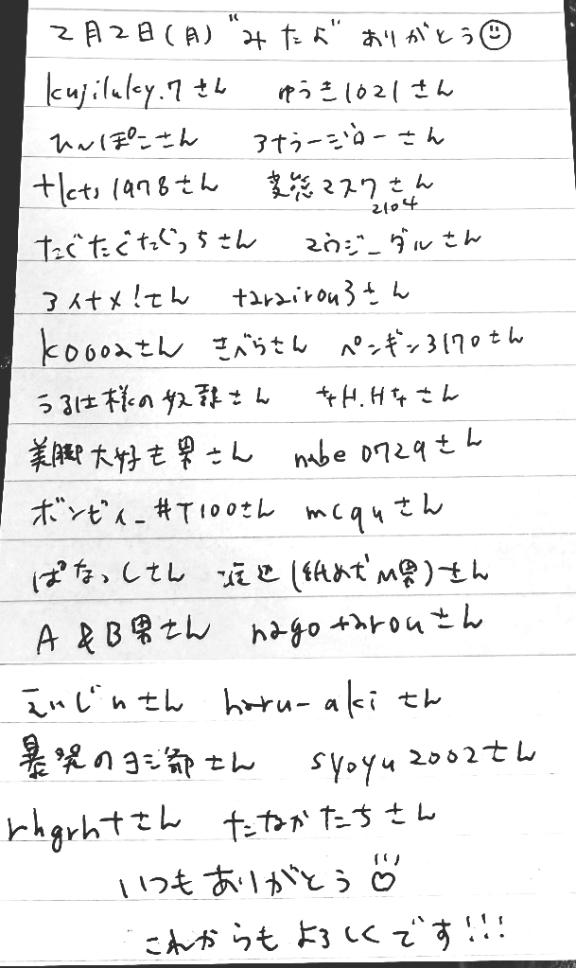 2月2日(月) "みたよ" ありがとう
kujiluky.7さん ゆうき1021さん
ひ〜ぽこさん ヨナラージローさん
tkts1978さん 変態マスクさん
2104
たぐたぐたぐっちさん マウジ_ダルさん
さん tarairou3さん
K0002さん さべらさん ペンギン3170さん
うるは様の奴隷さん キH.Hキさん
美脚大好き男さん nabe0729さん
ボンビィ_#T100さん mcquさん
ぱなっしさん 渡辺(紙めだM男)さん
A&B男さん nagotarouさん
えいじいさん haru-akiさん
暴発のヨシ爺さん syoyu2002さん
rhgrhtさん たなかたちさん
いつもありがとう
これからもよろしくです!!!